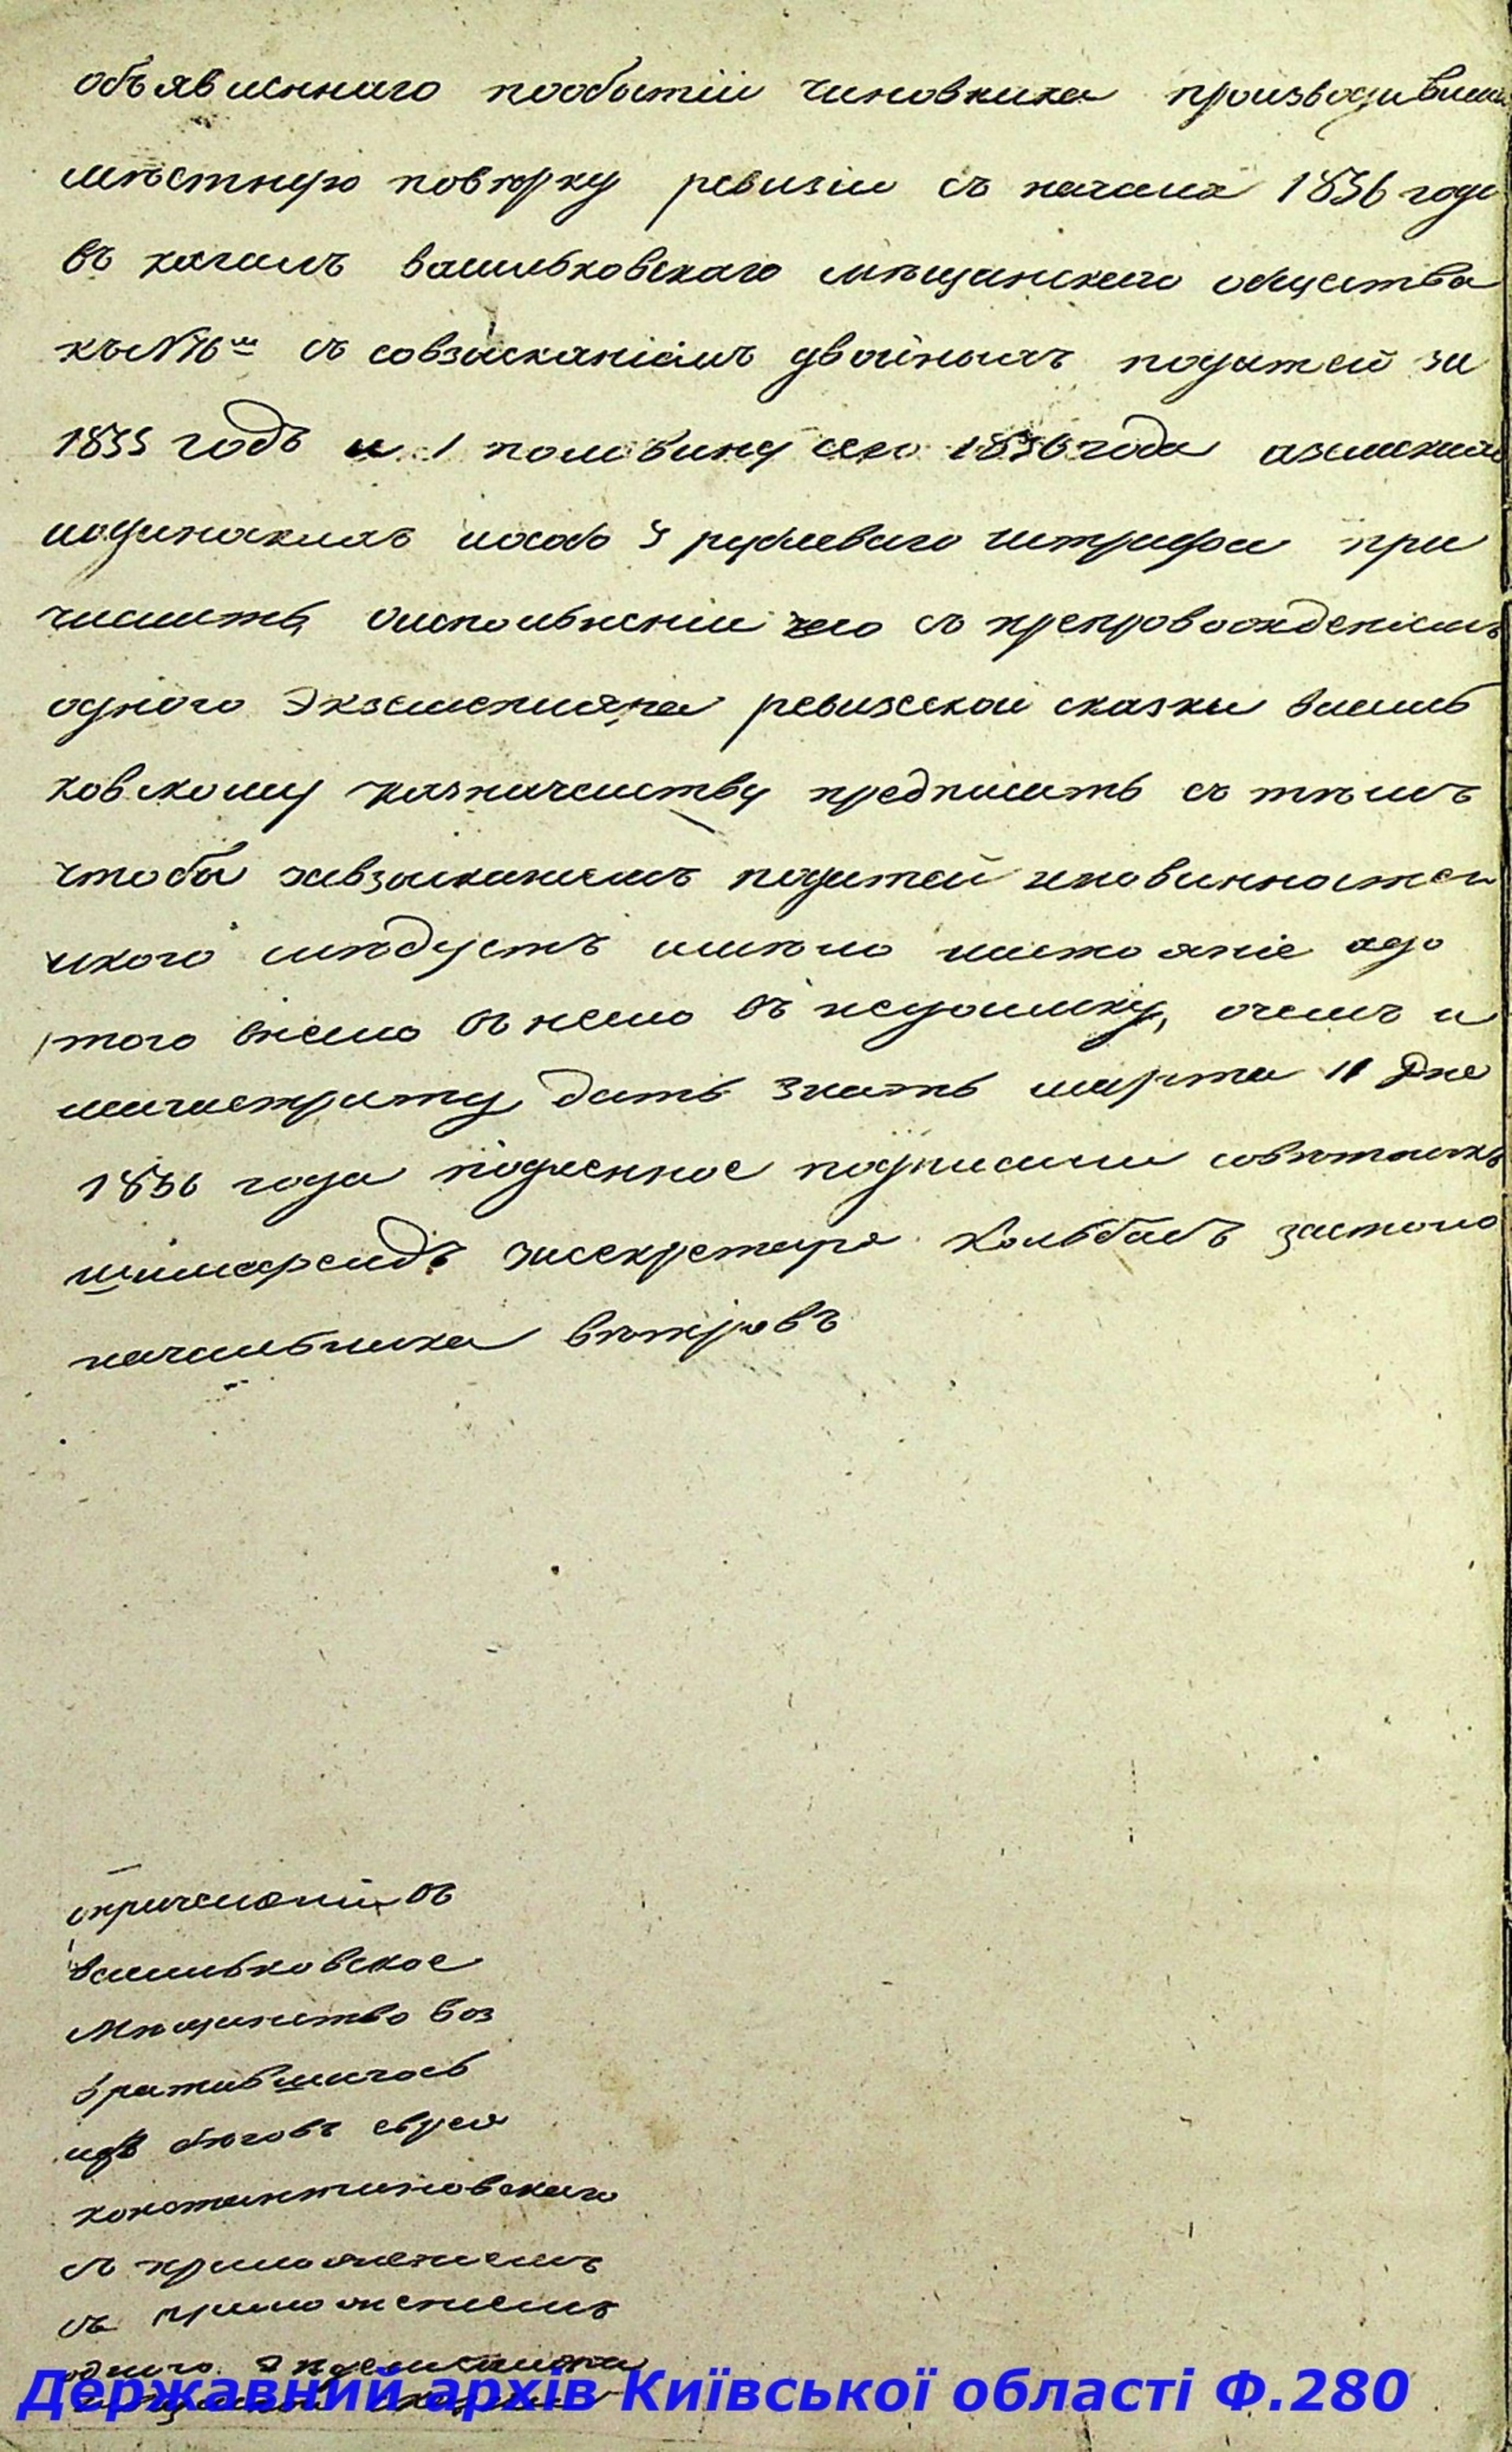 объявленнаго пообытіи чиновника производивши
мѣстную повѣрку ревизіи съ начала 1836 года
въ кагалъ васильковскаго мѣщанскаго общества
къ №76 м съ совзысканіемъ двойныхъ податей за
1835 годъ и 1 половину сего 1836 года
3 рублеваго штрафа при
числить, оисполненіи чего съ препровожденіемъ
одного экземпляра ревизской сказки василь
ковскому казначейству предписать съ тѣмъ
чтобы завзысканіемъ податей иповинностей
ского слѣдуетъ имѣло настояніе адо
того внело въ недоимку, очемъ и
магистрату дать знать марта 11 дня
1836 года подленное подписали совѣтникъ
засекретаря Кольбасъ застоло
начальника вѣтровъ
опричисленіи въ
васильковское
Мѣщанство воз
вратившагось
изъ бѣговъ еврея
константиновскаго
съ приложеніемъ
съ приложеніемъ
одного экземпляра
Державний архів Київської області Ф.280